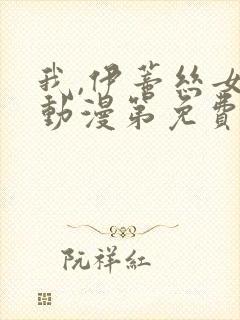 我,伊蕾丝女
動漫第免費
阮祥紅